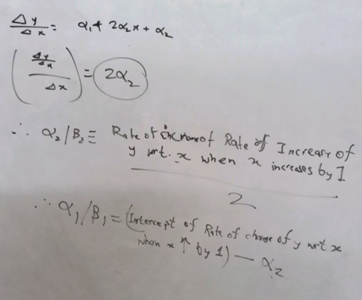 Δy/Δx = α₁ + 2α₂x + α₂
(Δy/Δx / Δx) = 2α₂
∴ α₂/β₂ ≡ Rate of change of Rate of Increase of
y wrt. x when x increases by 1
2
∴ α₁/β₁ = (Intercept of Rate of change of y wrt x
when x ↑ by 1) — α₂